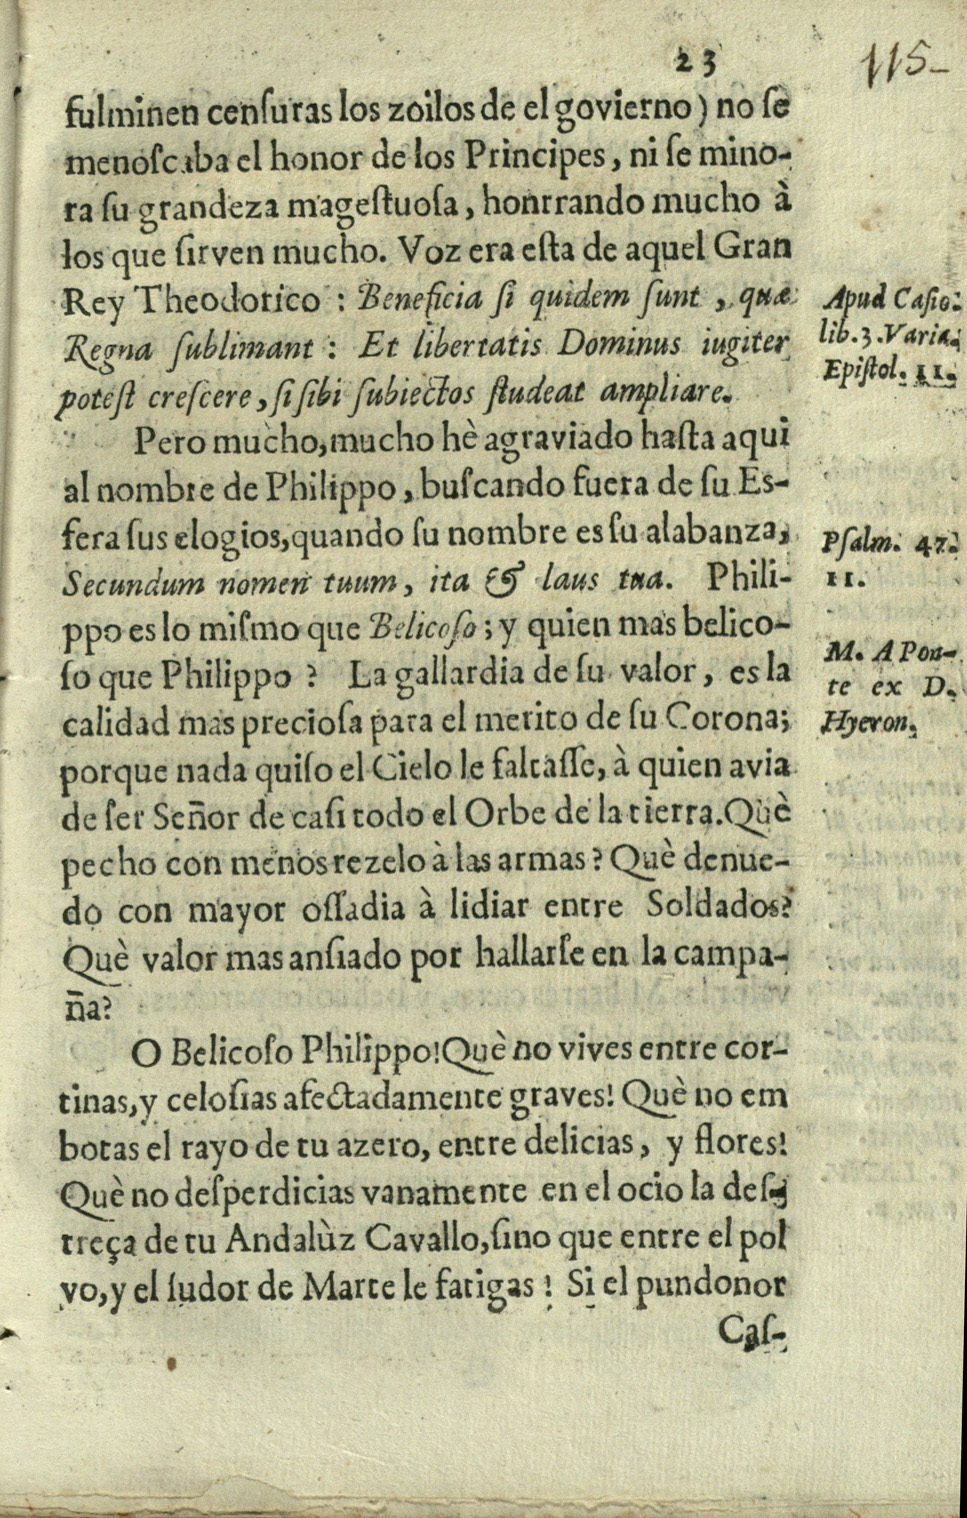 23
115-
fulminen censuras los zoilos de el govierno) no se
menoscaba el honor de los Principes, ni se mino-
ra su grandeza magestuosa, honrrando mucho à
los que sirven mucho. Voz era esta de aquel Gran
Rey Theodorico : Beneficia si quidem sunt, quæ
Regna sublimant : Et libertatis Dominus iugiter
potest crescere, si sibi subiectos studeat ampliare.
Apud Casio.
lib.3.Varia.
Epistol. 11.
Pero mucho, mucho hè agraviado hasta aqui
al nombre de Philippo, buscando fuera de su Es-
fera sus elogios, quando su nombre es su alabanza,
Secundum nomen tuum, ita & laus tua. Phili-
Psalm. 47.
11.
ppo es lo mismo que Belicoso; y quien mas belico-
so que Philippo ? La gallardia de su valor, es la
calidad mas preciosa para el merito de su Corona;
M. A Pon-
te ex D.
Hyeron.
porque nada quiso el Cielo le faltasse, à quien avia
de ser Señor de casi todo el Orbe de la tierra. Què
pecho con menos rezelo à las armas? Què denue-
do con mayor ossadia à lidiar entre Soldados?
Què valor mas ansiado por hallarse en la campa-
ña?
O Belicoso Philippo! Què no vives entre cor-
tinas, y celosias afectadamente graves! Què no em
botas el rayo de tu azero, entre delicias, y flores!
Què no desperdicias vanamente en el ocio la des-
treça de tu Andalùz Cavallo, sino que entre el pol
vo, y el sudor de Marte le fatigas ! Si el pundonor
Cas-